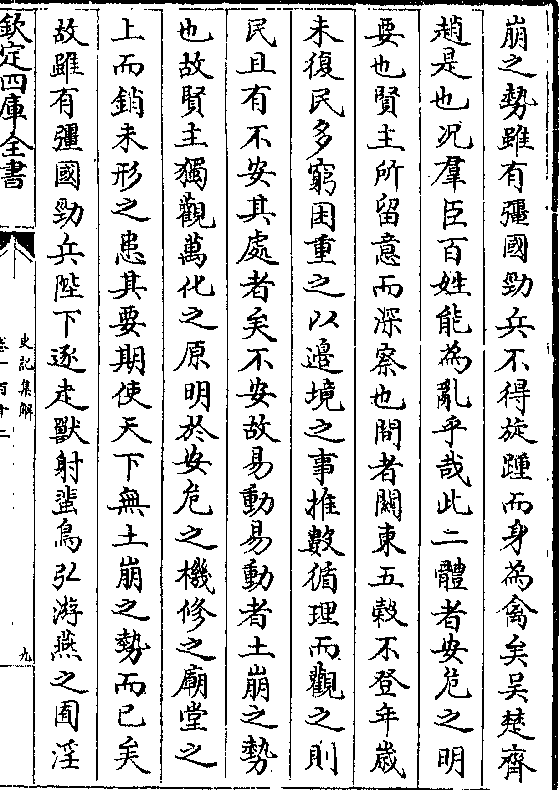 崩之勢雖有彊國勁兵不得旋踵而身為禽矣吳楚齊
趙是也况羣臣百姓能為亂乎哉此二體者安危之明
要也賢主所留意而深察也間者關東五穀不登年歲
未復民多窮困重之以邉境之事推數循理而觀之則
民且有不安其處者矣不安故易動易動者土崩之勢
也故賢主獨觀萬化之原明於安危之機修之廟堂之
上而銷未形之患其要期使天下無土崩之勢而已矣
故雖有彊國勁兵陛下逐走獸射蜚鳥弘游燕之囿淫
欽定四庫全書
史記集解
卷一百十二
九